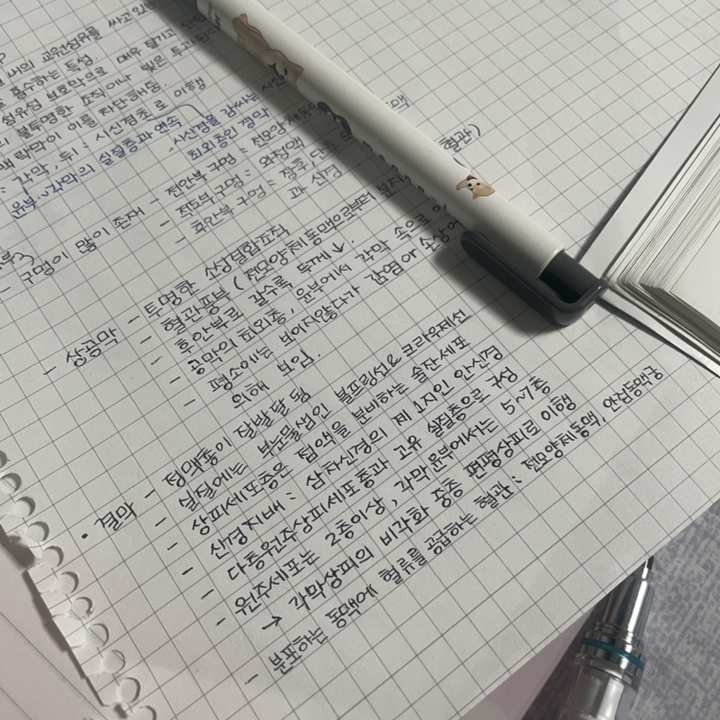 씨의 교원섬유를 싸고 있
흡수하는 특성
섬유성 보호막으로
의 불투명한 조직이나 빛은 투과된다
맥락막이 이를 차단해줌.
: 각막 두께 : 시신경초로 이행
윤부 → 각막의 실질층과 연속
시신경을 감싸는
최외층인 경막
- 구멍이 많이 존재 - 전안부 구멍 = 전모양체동맥
- 적도부 구멍 = 와정맥
- 후안부 구멍 = 장후 단후
과 신경
혈관)
- 상공막 - 투명한 섬성결합조직
- 혈관풍부 (전모양체동맥으로부터 분지
- 후안부로 갈수록 두께↓.
- 공막의 최외층, 윤부에서 각막 속으로
- 평소에는 보이지않다가 감염 or 손상에
의해 보임.
• 결막 - 정맥총이 잘발달 됨
- 실질에는 부눈물샘인 볼프링선& 크라우제선
- 상피세포층은 점액을 분비하는 술잔세포
- 신경지배 : 삼차신경의 제 1지인 안신경
- 다층원주상피세포층과 고유 실질층으로 구성
- 원주세포는 2층이상, 각막윤부에서는 5~7층
→ 각막상피의 비각화 중층 편평상피로 이행
- 분포하는 동맥에 혈류를 공급하는 혈관 : 전모양체동맥, 안검동맥궁